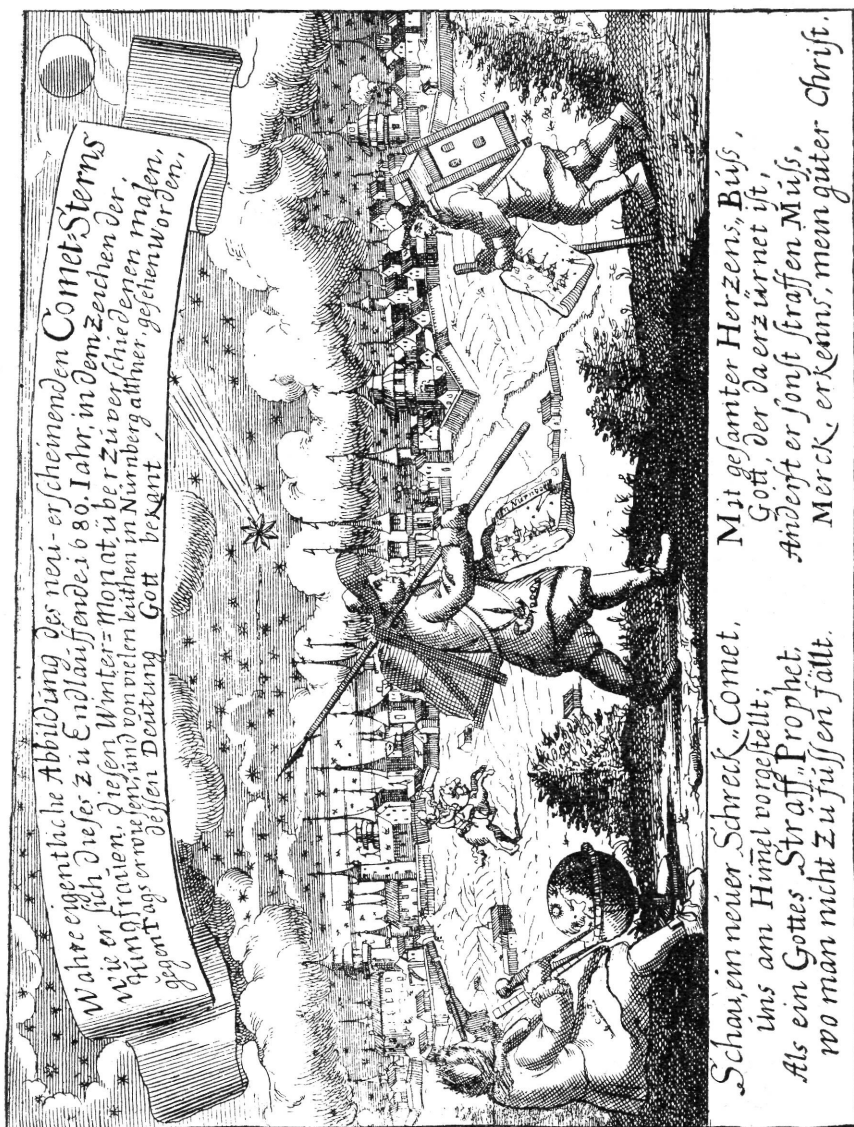 Wahre eigentliche Abbildung des neü-erscheinenden Comet-Sterns
Wie er sich dieser zu Endlauffende 1680. Iahr, in dem Zeichen der
Iungfrauen, diesen Winter=Monat, über zu verschiedenen malen,
gegen Tags erwiesen, und von vielen leüthen in Nürnberg allhier gesehen worden,
dessen Deütung Gott bekant,
Nürnberg
Schau, ein neüer Schreck„Comet,
üns am Him̄el vorgestellt;
Als ein Gottes Straff„Prophet.
wo man nicht Zu füssen fällt.
Mit gesamter Herzens„Büss,
Gott, der da erzürnet ist,
Anderst er sonst straffen Müß,
Merck erkenns, mein güter Christ.